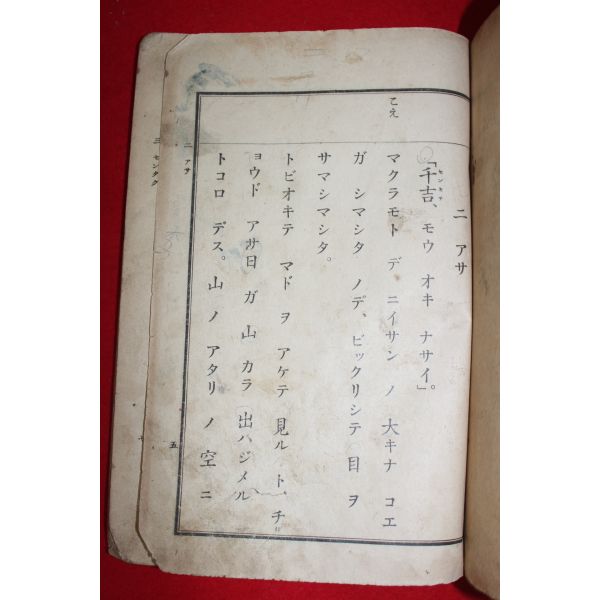 こえ
二 アサ
「千吉、モウ オキ ナサイ」。
センキチ
マクラモト デ ニイサン ノ 大キナ コエ
ガ シマシタ ノデ、ビックリシテ 目 ヲ
サマシマシタ。
トビオキテ マド ヲ アケテ 見ル ト、チ
ョウド アサ日 ガ 山 カラ 出ハジメル
トコロ デス。山 ノ アタリ ノ 空 ニ
二 アサ
五
三 センタク
七